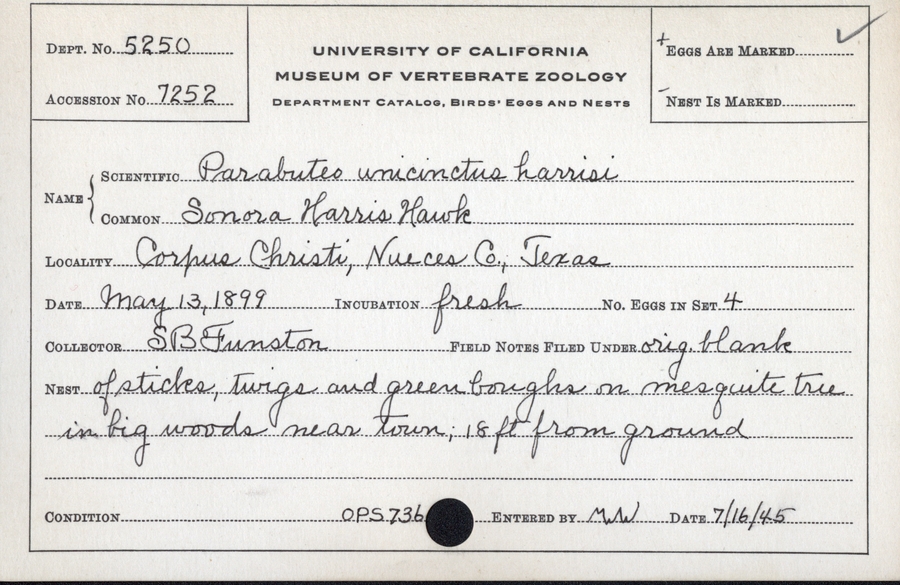 Dept. No. 5250
Accession No. 7252
UNIVERSITY OF CALIFORNIA
MUSEUM OF VERTEBRATE ZOOLOGY
Department Catalog, Birds' Eggs and Nests
+ Eggs Are Marked ✓
- Nest Is Marked
Name { Scientific Parabuteo unicinctus harrisi
Common Sonora Harris Hawk
Locality Corpus Christi, Nueces Co., Texas
Date May 13, 1899 Incubation fresh No. Eggs in Set 4
Collector SB Funston Field Notes Filed Under orig. blank
Nest of sticks, twigs and green boughs on mesquite tree
in big woods near town; 18 ft from ground
Condition OPS 736 Entered by MW Date 7/16/45